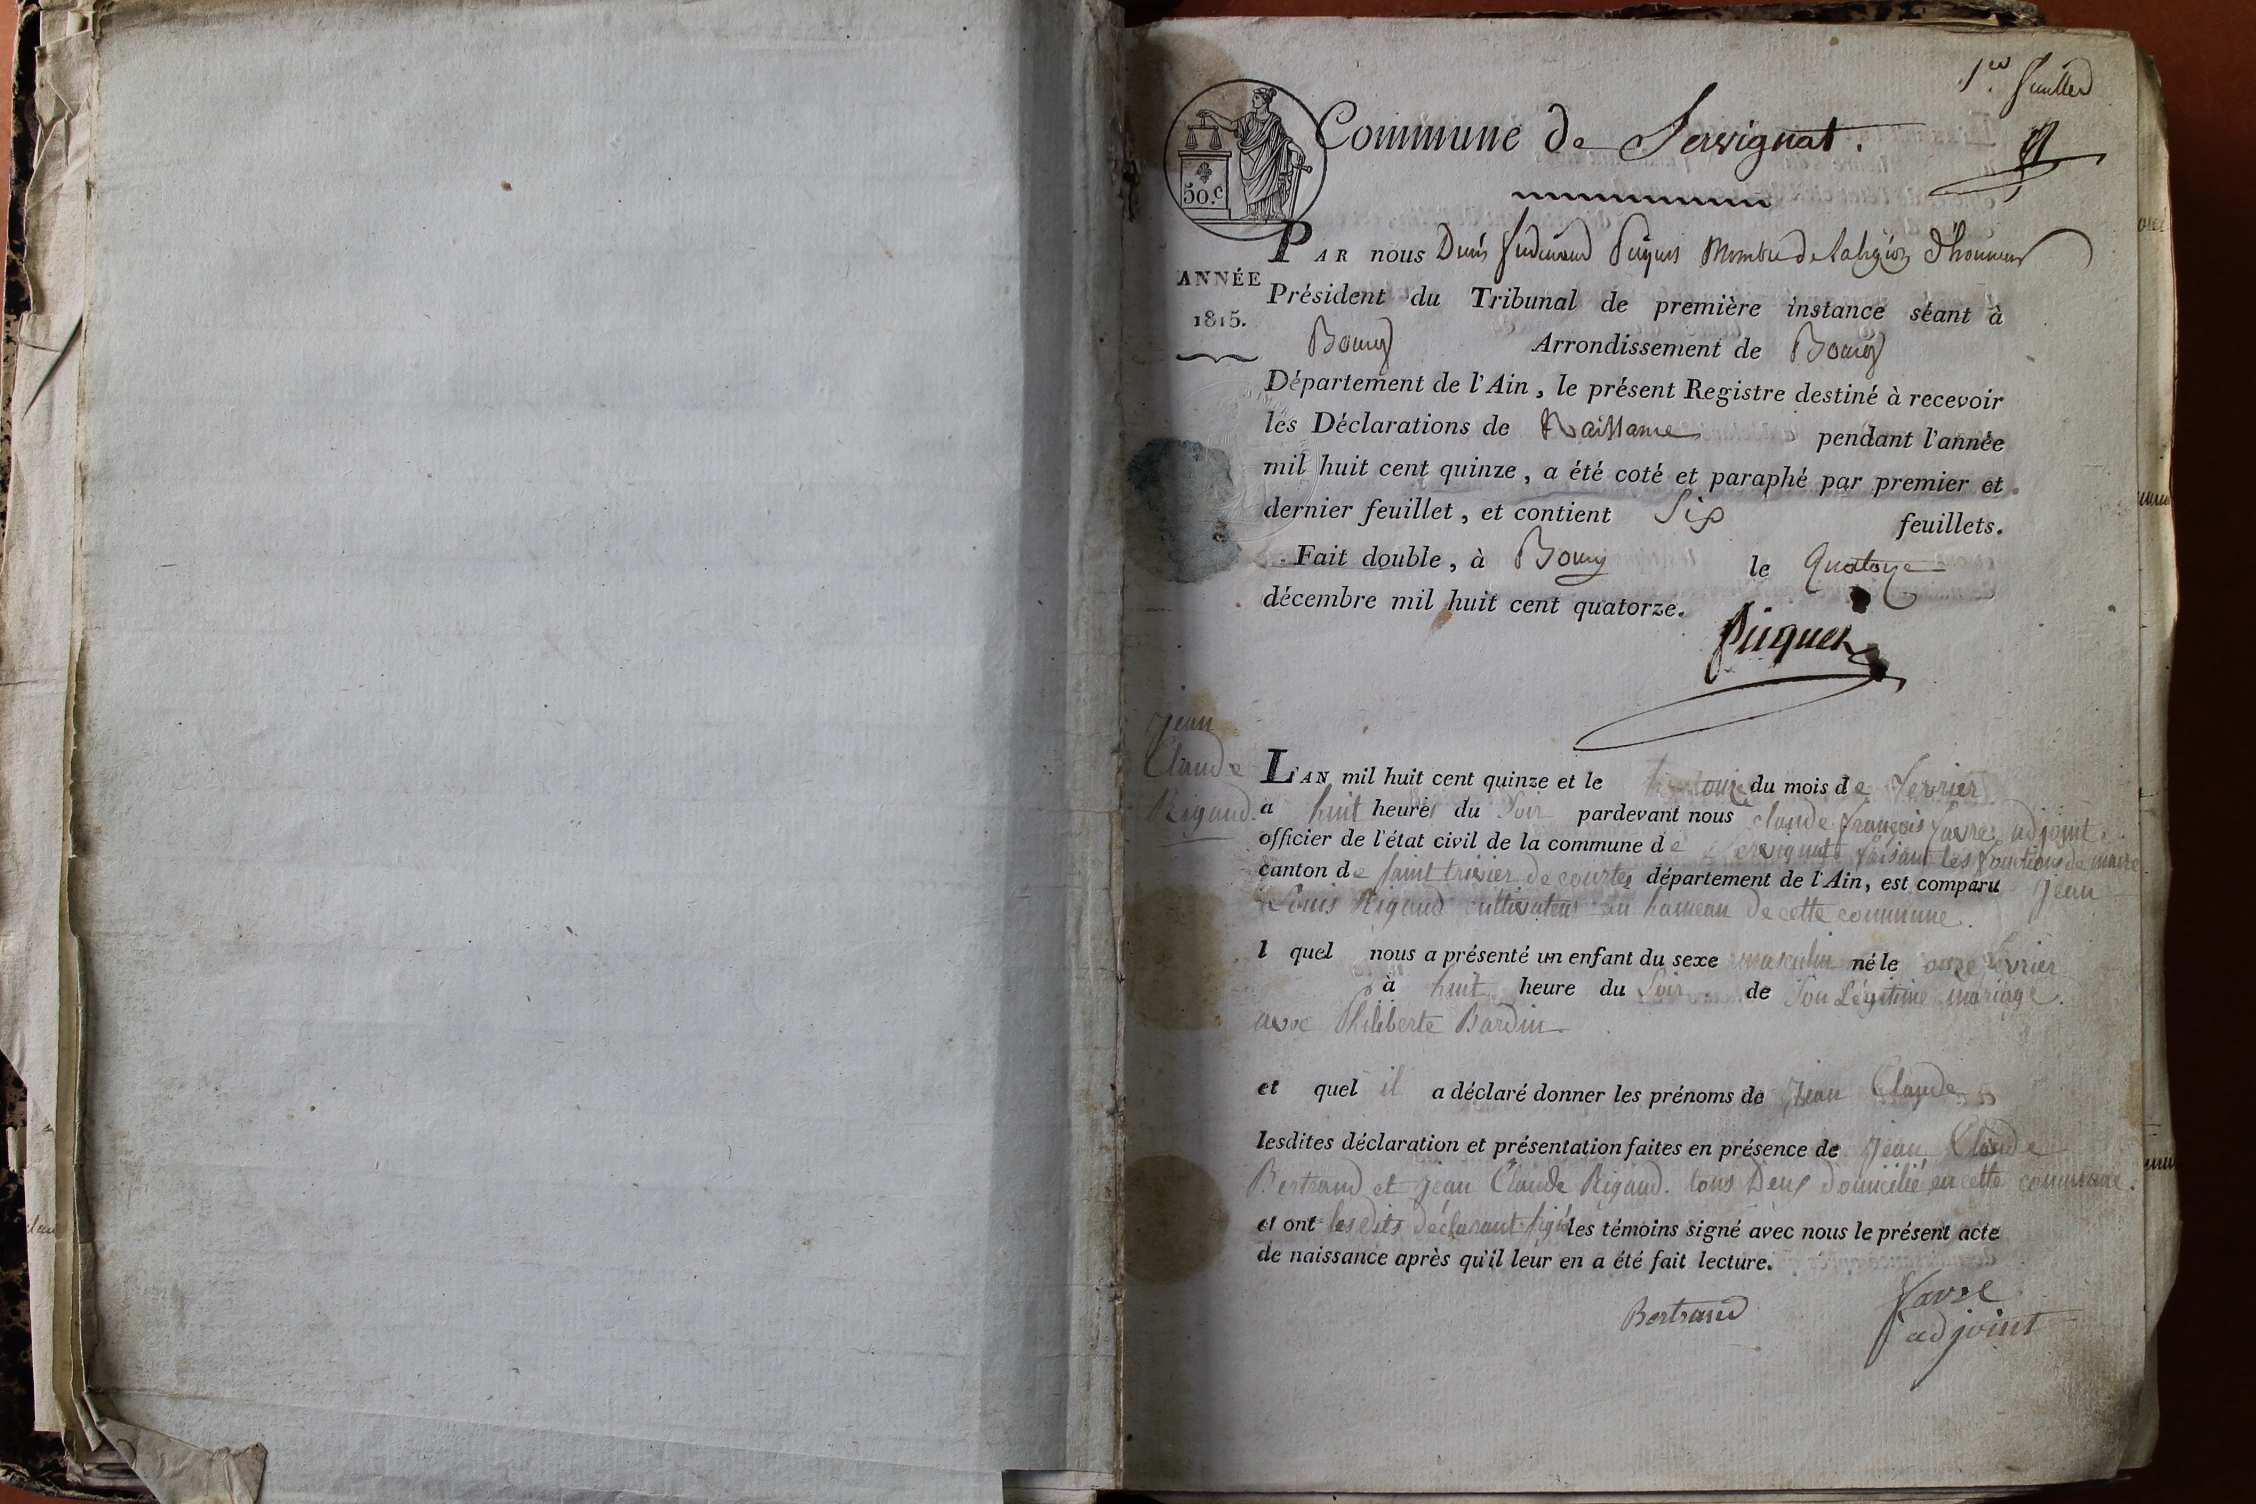 1er feuillet
Commune de Servignat.
50.c
PAR nous Denis ferdinand Puiguet Membre de la légion d'honneur
ANNÉE
1815.
Président du Tribunal de première instance séant à
Bourg Arrondissement de Bourg
Département de l'Ain, le présent Registre destiné à recevoir
les Déclarations de Naissance pendant l'année
mil huit cent quinze, a été coté et paraphé par premier et
dernier feuillet, et contient Six feuillets.
Fait double, à Bourg le Quatorze
décembre mil huit cent quatorze.
Jean
Claude
Rigaud.
L'AN mil huit cent quinze et le du mois de fevrier
a huit heures du Soir pardevant nous claude françois favre adjoint
officier de l'état civil de la commune de Servignat faisant les fonctions de maire
canton de Saint trivier de courtes département de l'Ain, est comparu Jean
Louis Rigaud cultivateur au hameau de cette commune.
l quel nous a présenté un enfant du sexe masculin né le onze fevrier
à huit heure du Soir de Son Légitime mariage.
avec Philiberte Bardin
et quel il a déclaré donner les prénoms de Jean Claude
lesdites déclaration et présentation faites en présence de Jean Claude
Bertrand et Jean Claude Rigaud. tous Deux domicilié en cette commune.
et ont lesdits déclarant les témoins signé avec nous le présent acte
de naissance après qu'il leur en a été fait lecture.
Bertrand
favre
adjoint